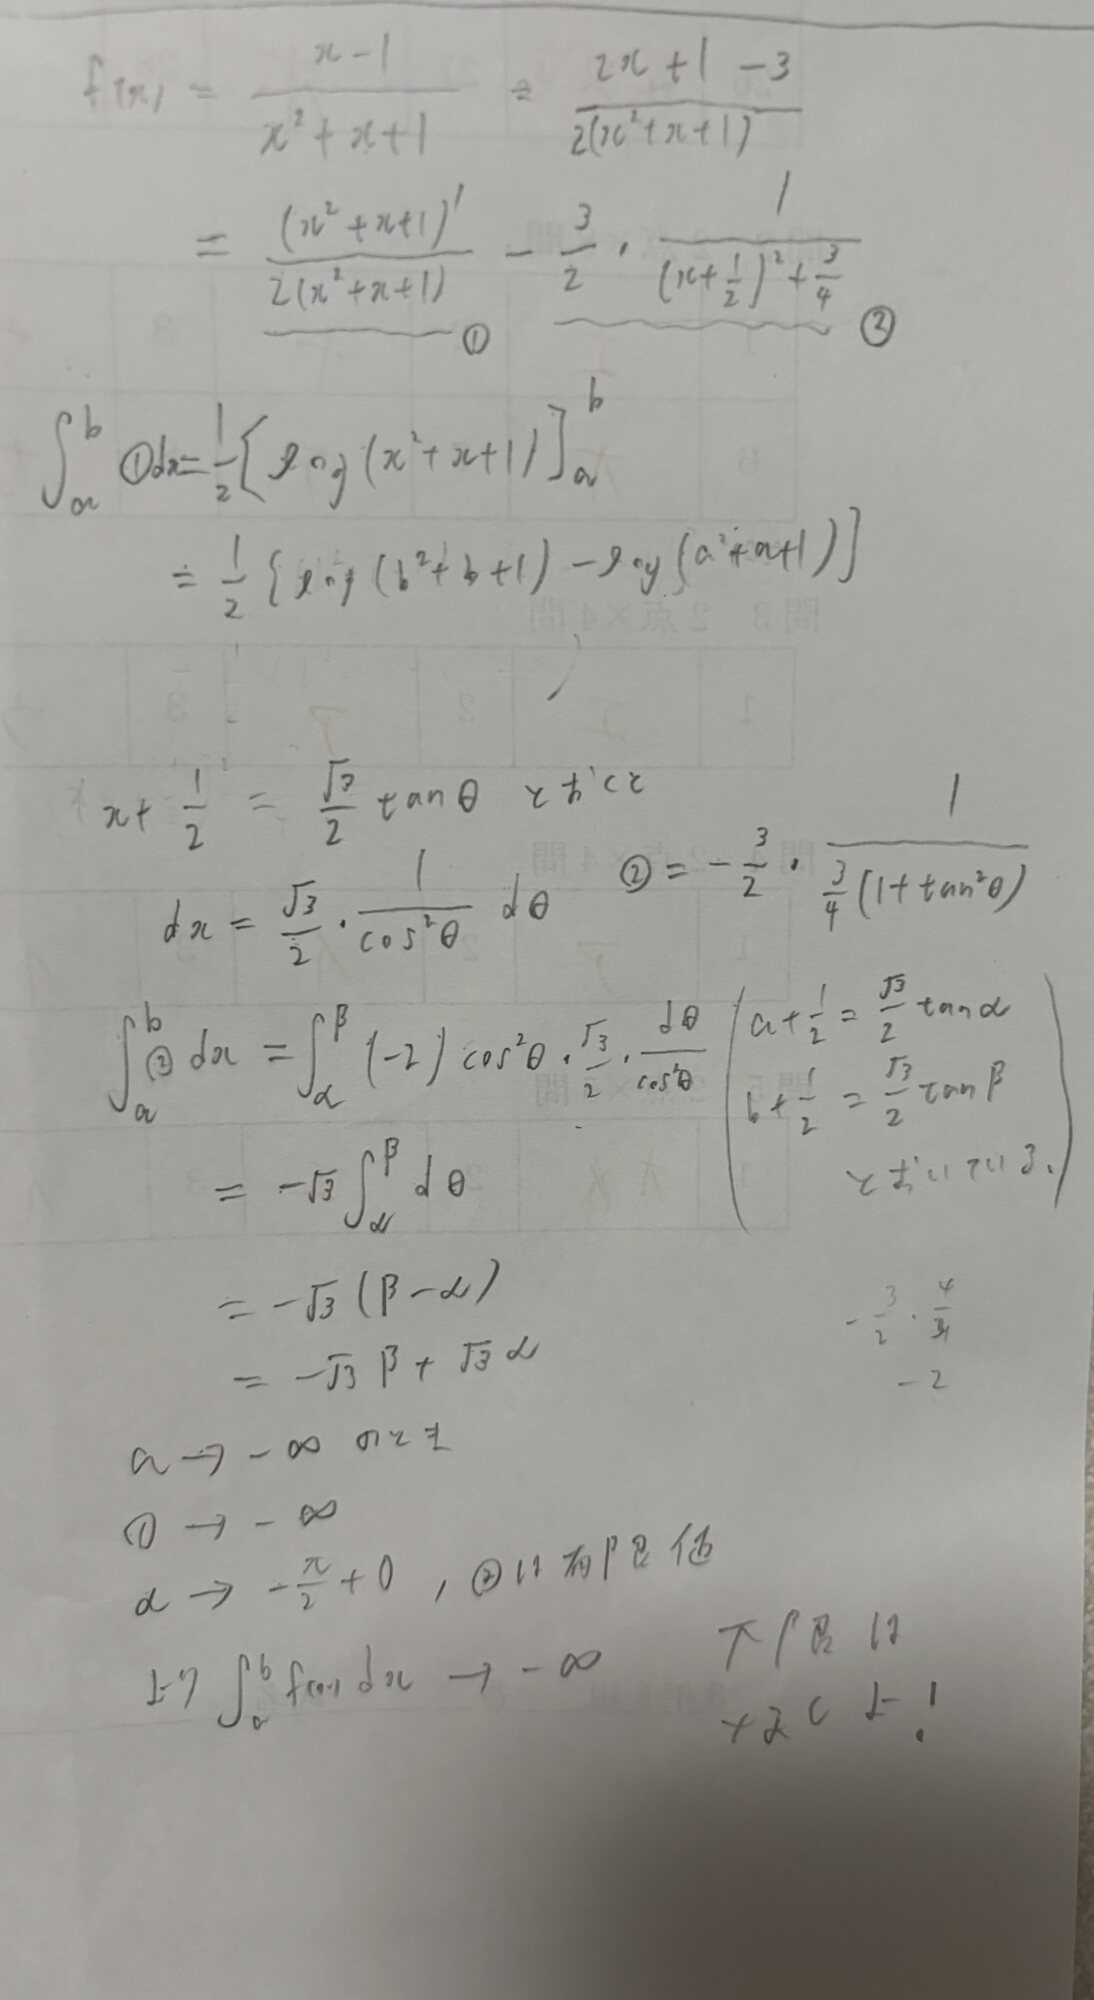 f(x) = (x-1)/(x²+x+1) = (2x+1-3)/(2(x²+x+1))
= (x²+x+1)'/(2(x²+x+1)) - 3/2・1/((x+1/2)²+3/4)
① ②
∫_a^b ①dx = 1/2[log(x²+x+1)]_a^b
= 1/2{log(b²+b+1)-log(a²+a+1)}
x+1/2 = √3/2 tanθ とおくと
dx = √3/2・1/cos²θ dθ
② = -3/2・1/(3/4(1+tan²θ))
∫_a^b ②dx = ∫_α^β (-2)cos²θ・√3/2・dθ/cos²θ
(a+1/2 = √3/2 tanα
b+1/2 = √3/2 tanβ
とおいている.)
= -√3∫_α^β dθ
= -√3(β-α)
= -√3β+√3α
-3/2・4/3
-2
a→-∞ のとき
①→-∞
α→-π/2+0, ②は有限値
より ∫_a^b f(x)dx→-∞
下限は
なしよ!